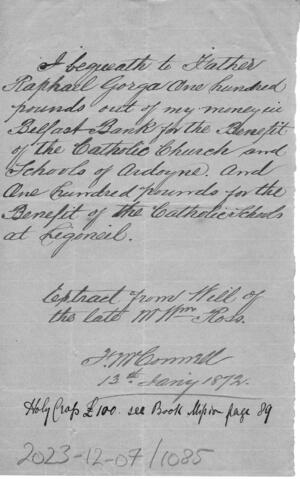 I bequeath to Father
Raphael Gorga One hundred
pounds out of my money in
Belfast Bank for the Benefit
of the Catholic Church and
Schools of Ardoyne. And
One hundred pounds for the
Benefit of the Catholic Schools
at Ligoneil.
Extract from Will of
the late Mr Wm Ross.
13th Jany 1872.
Holy Cross £100. see Book page 89
2023-12-07/1085